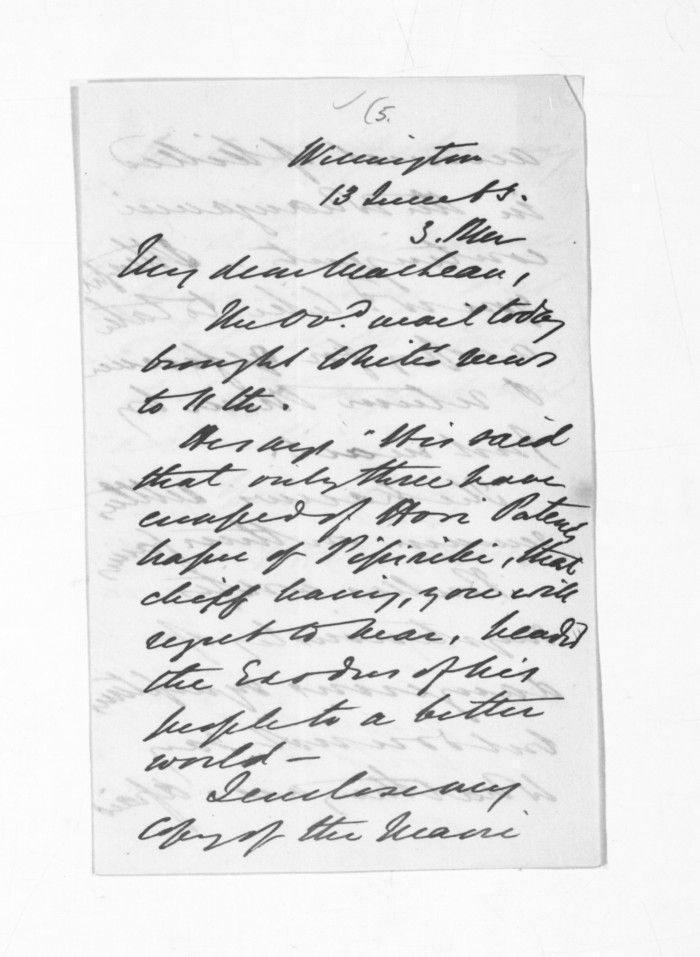 (5.
Wellington
13 June 65.
3. P.M.
My dear MacLean,
The Ovd. mail today
brought White's news
to 11th.
He says "It is said
that only three have
escaped of Hori Patene's
hapu of Pipiriki, that
chief having, you will
regret to hear, headed
the Exodus of his
people to a better
world —
I enclose my
copy of the Maori